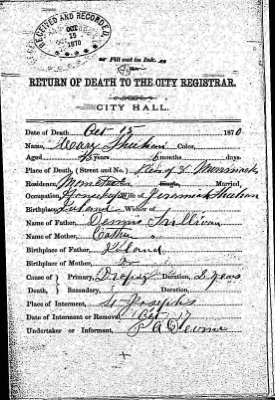 RECEIVED AND RECORDED,
OCT
15
1870
or Fill out in Ink.
RETURN OF DEATH TO THE CITY REGISTRAR.
CITY HALL.
Date of Death, Oct 15 1870
Name, Mary Sheehan Color,
Aged years months, days.
Place of Death, (Street and No.)
Residence, Single, Married,
Occupation, of Jeremiah Sheehan
Birthplace, Ireland Widow
Name of Father, Dennis Sullivan
Name of Mother, Cathn
Birthplace of Father, Ireland
Birthplace of Mother, Do
Cause of Primary, Dropsy Duration, 2 years
Death, Secondary, Duration,
Place of Interment, St Josephs
Date of Interment or Removal, Oct 17
Undertaker or Informant, P A